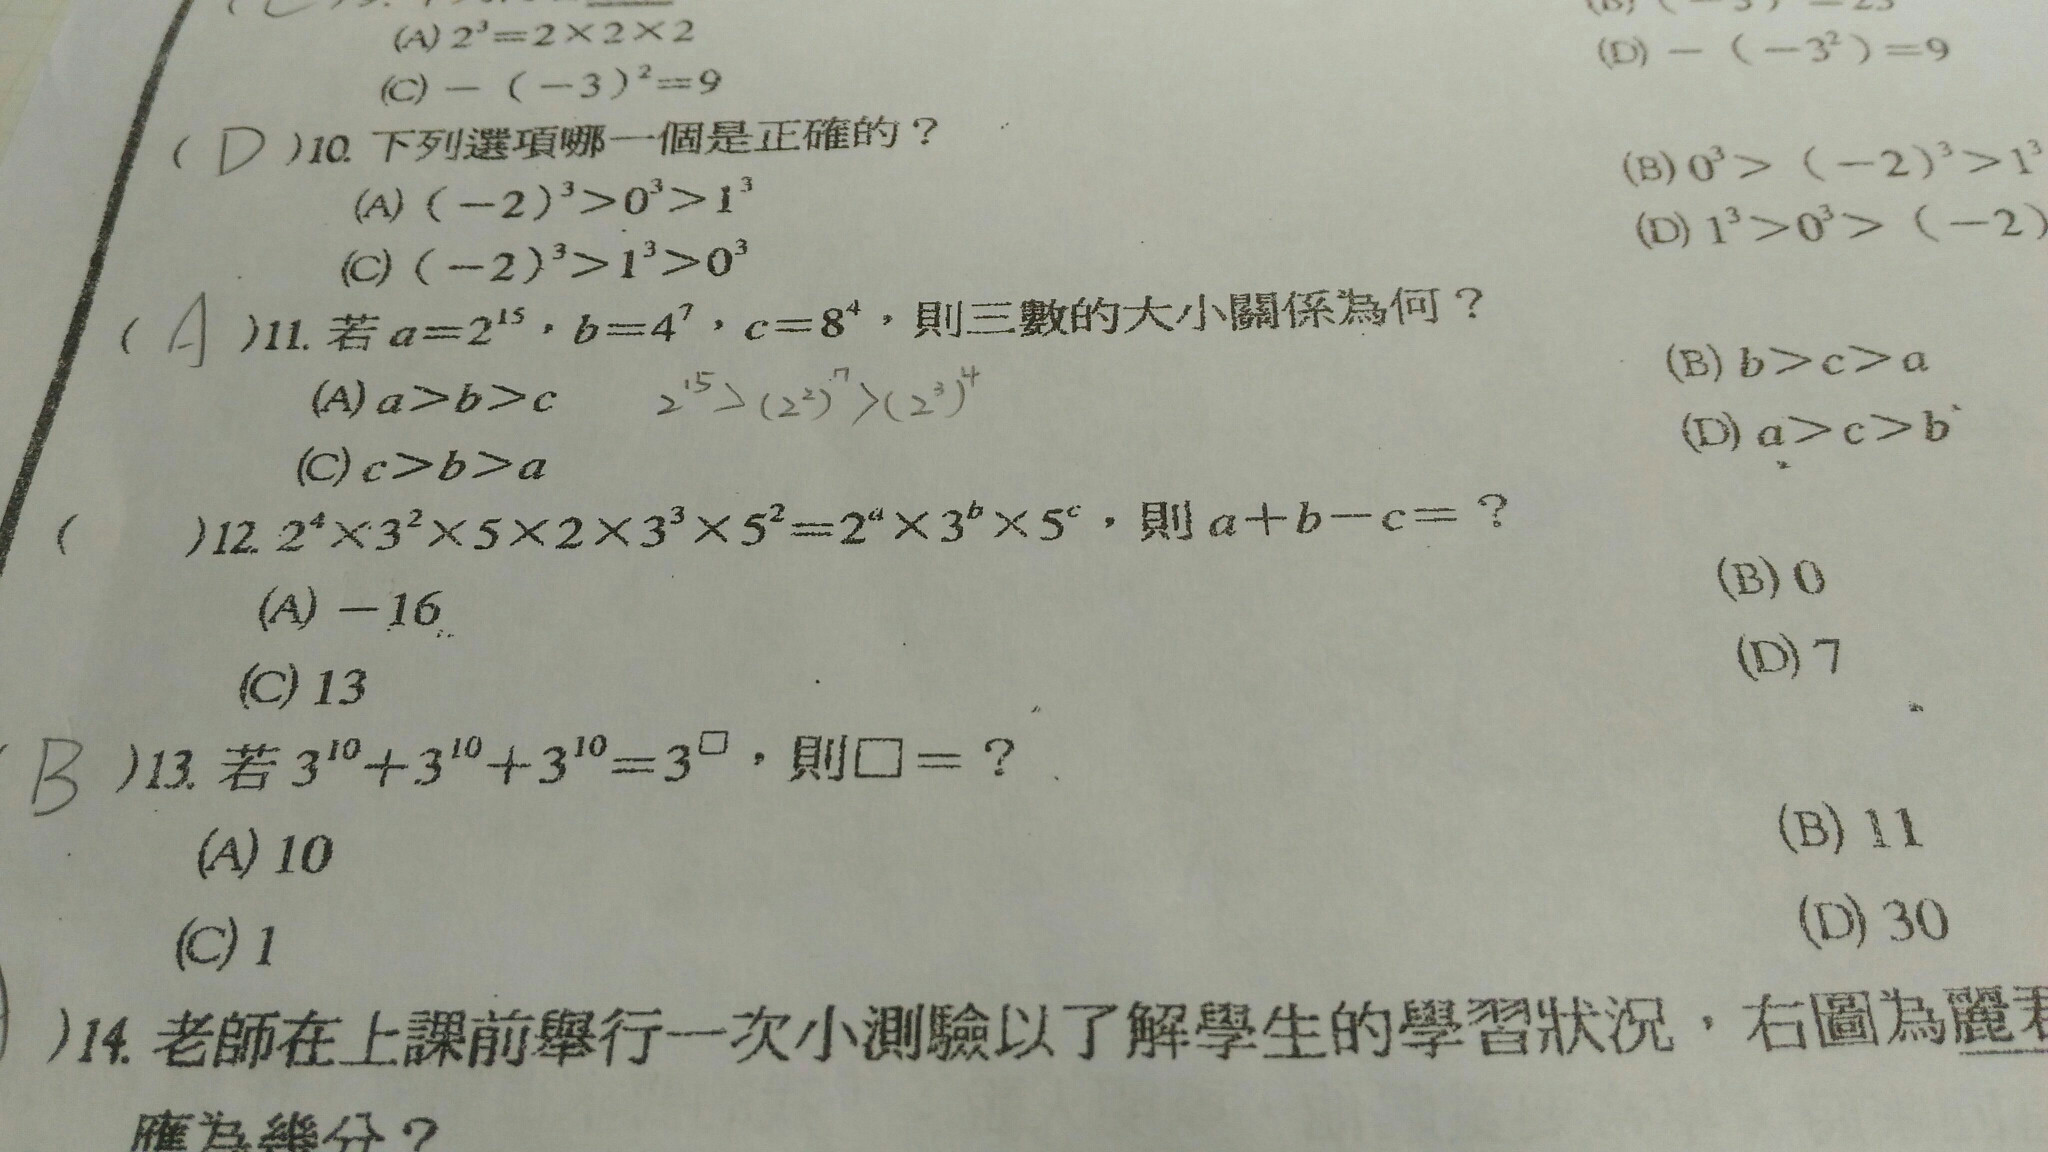 (A) 2³=2×2×2
(C) −（−3）²=9
(D) −（−3²）=9
( D )10. 下列選項哪一個是正確的？
(A)（−2）³>0³>1³
(B) 0³>（−2）³>1³
(C)（−2）³>1³>0³
(D) 1³>0³>（−2）
( A )11. 若 a=2¹⁵，b=4⁷，c=8⁴，則三數的大小關係為何？
(A) a>b>c
2¹⁵>(2²)⁷>(2³)⁴
(B) b>c>a
(C) c>b>a
(D) a>c>b
( )12. 2⁴×3²×5×2×3³×5²=2ᵃ×3ᵇ×5ᶜ，則 a+b−c=？
(A) −16
(B) 0
(C) 13
(D) 7
( B )13. 若 3¹⁰+3¹⁰+3¹⁰=3^□，則□=？
(A) 10
(B) 11
(C) 1
(D) 30
)14. 老師在上課前舉行一次小測驗以了解學生的學習狀況，右圖為麗君
應為幾分？